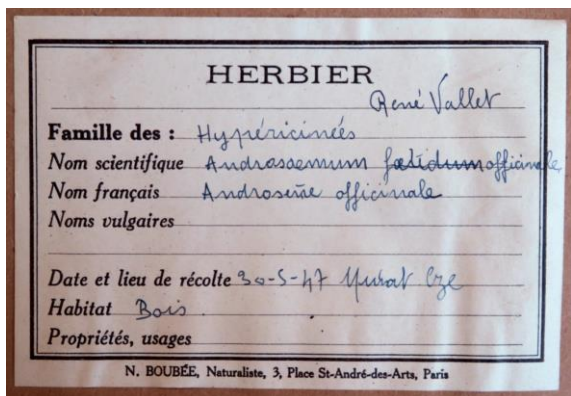 HERBIER
René Vallet
Famille des : Hypéricinées
Nom scientifique Androsaemum fœtidum officinale
Nom français Androsème officinale
Noms vulgaires
Date et lieu de récolte 30-5-47 Murat
Habitat Bois.
Propriétés, usages
N. BOUBÉE, Naturaliste, 3, Place St-André-des-Arts, Paris